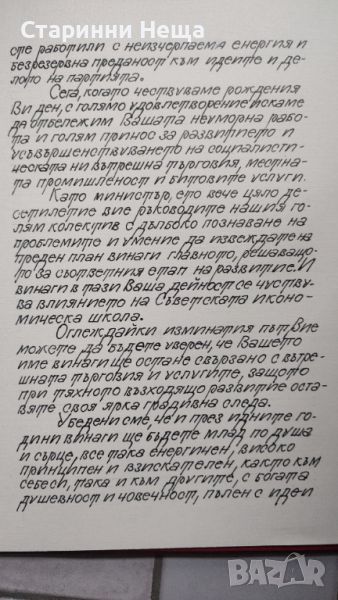 Старинни Неща
сте работили с неизчерпаема енергия и
безрезервна преданост към идеите и де-
лото на партията.
Сега, когато честваме рождения
Ви ден, с голямо удовлетворение искаме
да отбележим Вашата неуморна рабо-
та и голям принос за развитието и
усъвършенствуването на социалисти-
ческата ни вътрешна търговия, местна-
та промишленост и битовите услуги.
Като министър, ето вече цяло де-
сетилетие вие ръководите нашия го-
лям колектив с дълбоко познаване на
проблемите и умение да извеждате на
преден план винаги главното, решаващо-
то за съответния етап на развитие. И
винаги в тази Ваша дейност се чуству-
ва влиянието на Съветската иконо-
мическа школа.
Оглеждайки изминатия път Вие
можете да бъдете уверен, че Вашето
име винаги ще остане свързано с вътре-
шната търговия и услугите, защото
при тяхното възходящо развитие оста-
вяте своя ярка градивна следа.
Убедени сме, че и през идните го-
дини винаги ще бъдете млад по душа
и сърце, все така енергичен, високо
принципен и взискателен, както към
себеси, така и към другите, с богата
душевност и човечност, пълен с идеи
BAZAR.BG